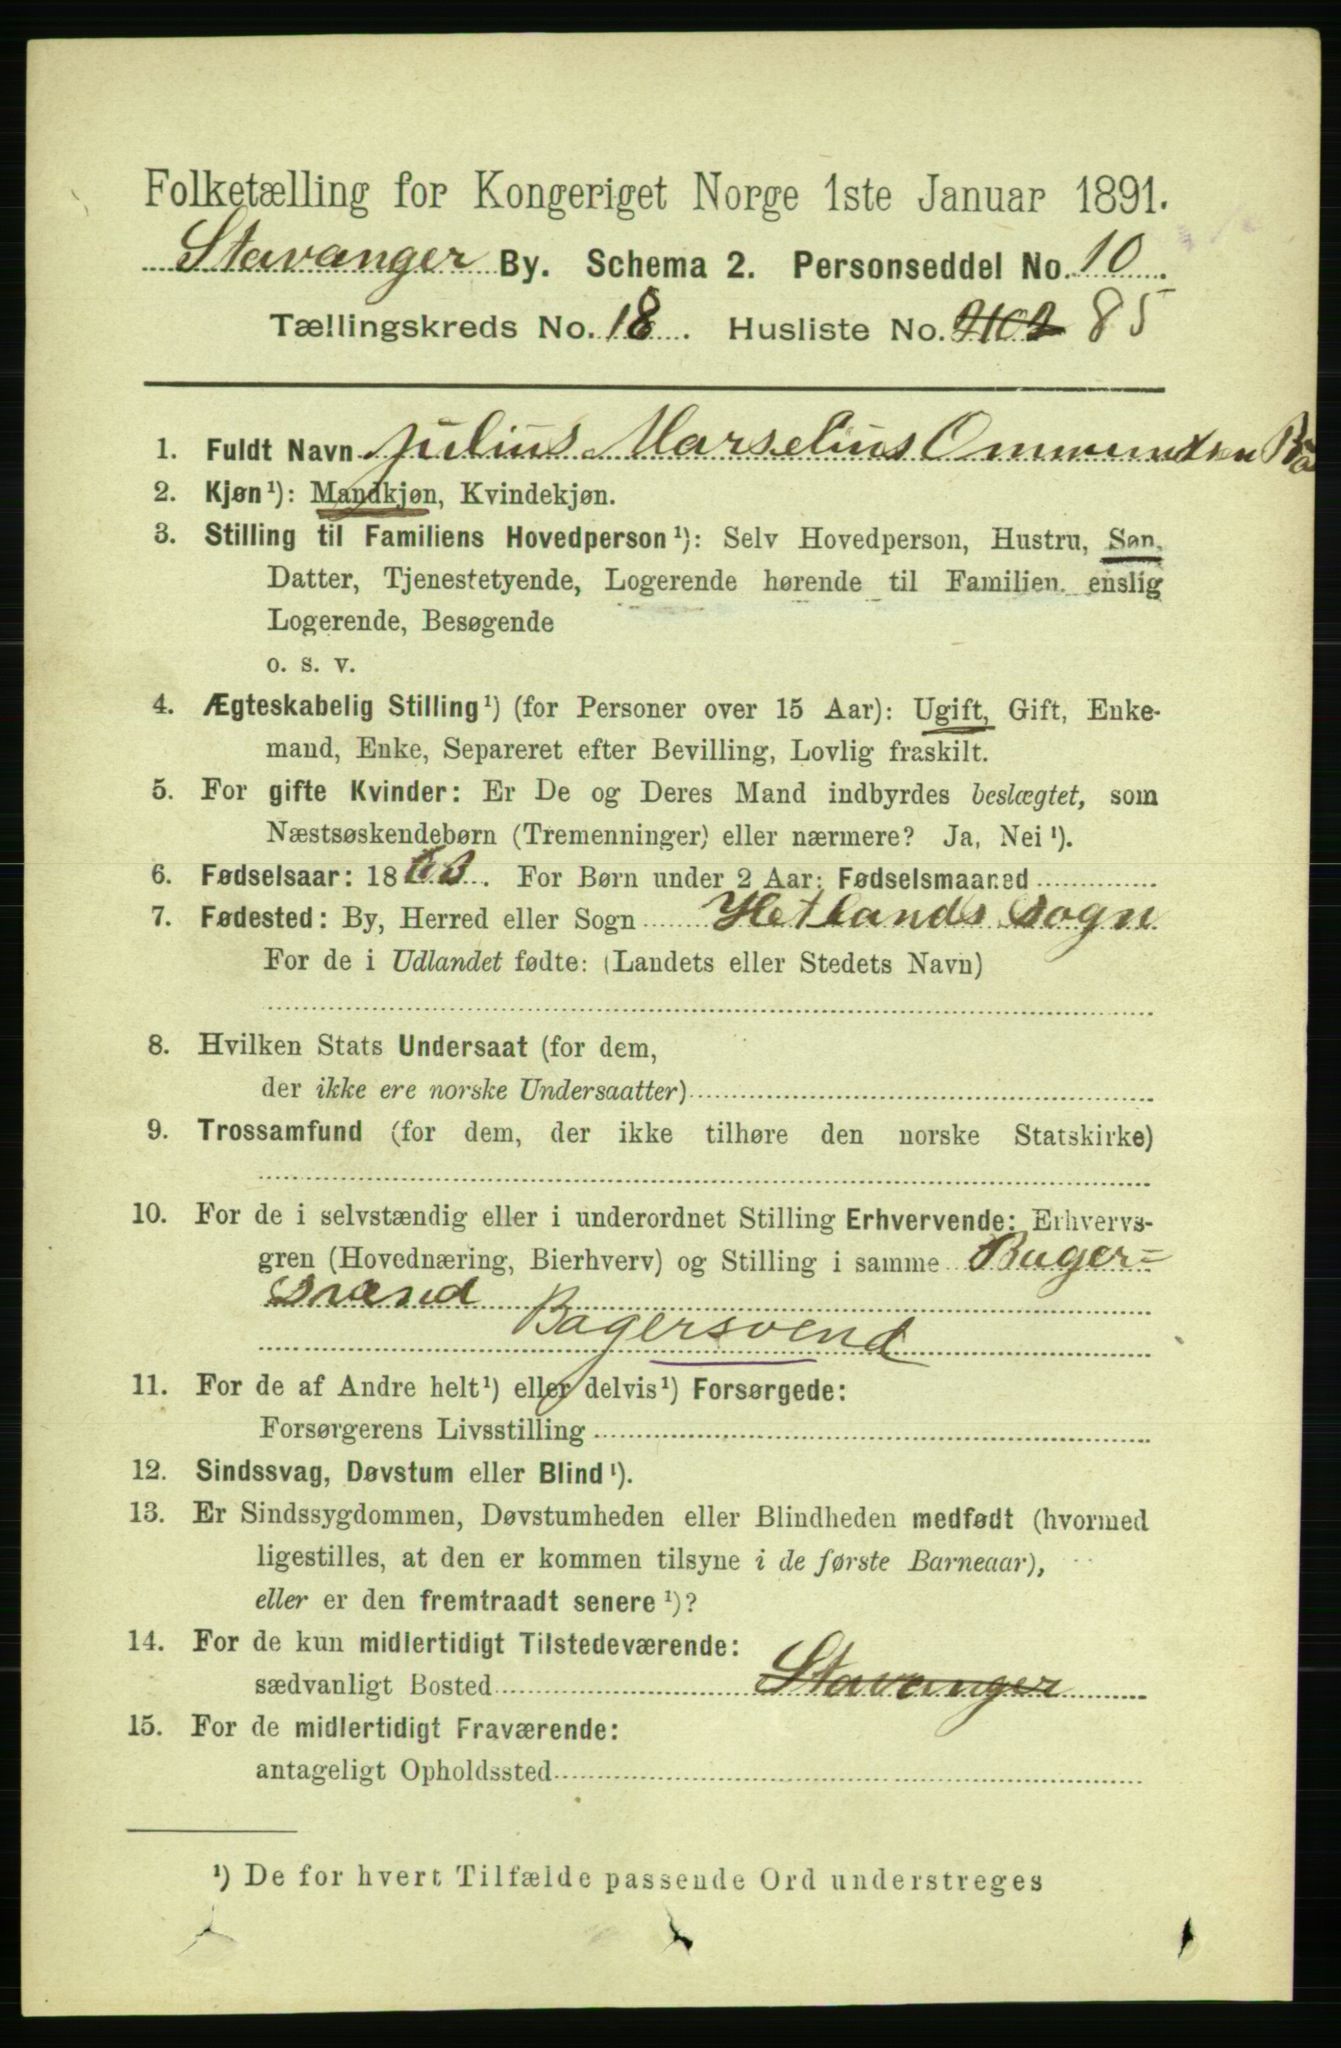 Folketælling for Kongeriget Norge 1ste Januar 1891.
Stavanger By. Schema 2. Personseddel No. 10.
Tællingskreds No. 18. Husliste No. 2102 85
1. Fuldt Navn Julius Marselius Ommundsen
2. Kjøn¹): Mandkjøn, Kvindekjøn.
3. Stilling til Familiens Hovedperson¹): Selv Hovedperson, Hustru, Søn,
Datter, Tjenestetyende, Logerende hørende til Familien, enslig
Logerende, Besøgende
o. s. v.
4. Ægteskabelig Stilling¹) (for Personer over 15 Aar): Ugift, Gift, Enke-
mand, Enke, Separeret efter Bevilling, Lovlig fraskilt.
5. For gifte Kvinder: Er De og Deres Mand indbyrdes beslægtet, som
Næstsøskendebørn (Tremenninger) eller nærmere? Ja, Nei¹).
6. Fødselsaar: 18 . For Børn under 2 Aar: Fødselsmaaned
7. Fødested: By, Herred eller Sogn Hetlands Sogn
For de i Udlandet fødte: (Landets eller Stedets Navn)
8. Hvilken Stats Undersaat (for dem,
der ikke ere norske Undersaatter)
9. Trossamfund (for dem, der ikke tilhøre den norske Statskirke)
10. For de i selvstændig eller i underordnet Stilling Erhvervende: Erhvervs-
gren (Hovednæring, Bierhverv) og Stilling i samme Bager=
Bagersvend
11. For de af Andre helt¹) eller delvis¹) Forsørgede:
Forsørgerens Livsstilling
12. Sindssvag, Døvstum eller Blind¹).
13. Er Sindssygdommen, Døvstumheden eller Blindheden medfødt (hvormed
ligestilles, at den er kommen tilsyne i de første Barneaar),
eller er den fremtraadt senere¹)?
14. For de kun midlertidigt Tilstedeværende:
sædvanligt Bosted Stavanger
15. For de midlertidigt Fraværende:
antageligt Opholdssted
¹) De for hvert Tilfælde passende Ord understreges